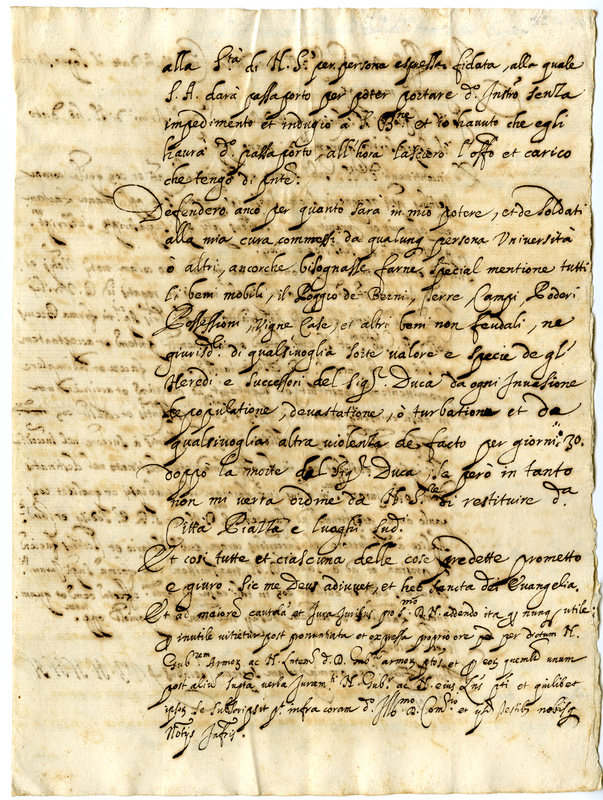 alla S.tà di N. S.re per persona espressa, fidata, alla quale
S. A. darà passaporto per poter portare d.o Instro senza
impedimento et indugio à S. B.ne et io havuto che egli
haurà d.o passaporto, all'hora lascierò l'offo et carico
che tengo di pnte.
Defenderò anco per quanto sarà in mio potere, et de soldati
alla mia cura commessi da qualunq persona Università
ò altri, ancorche bisognasse farne special mentione tutti
li beni mobili, il Poggio de Berni, Terre Campi, Poderi
Possessioni, Vigne Case, et altri beni non feudali, ne
giurisd.li di qualsivoglia sorte valore e specie de gl'
Heredi e successori del Sig.r Duca da ogni Invasione
depopulatione, devastatione, ò turbatione et da
qualsivoglia altra violenza de facto per giorni 30.
doppò la morte del Sig.r Duca, se però in tanto
non mi verrà ordine da N. S.re di restituire d.a
Città Piazza e luoghi Lud.
Et così tutte et ciascuna delle cose predette prometto
e giuro. Sic me Deus adiuvet, et hec sancta dei Evangelia.
Et ad maiorem cautela et Jura Juribus addendo ita q nunq utile
q inutile vitietur post pronuntiata et expressa proprio ore per dictum N.
Gub.rem Armor ac N. Inten d. D. Gub.ri armor et quemlibet unum
post alium iuxta verba Juram.ti N. Gub. ac N. eius et quilibet
ipsor se subscripsit infra coram d.o Ill.mo D. et Testibus nobisq
Notijs Infris.